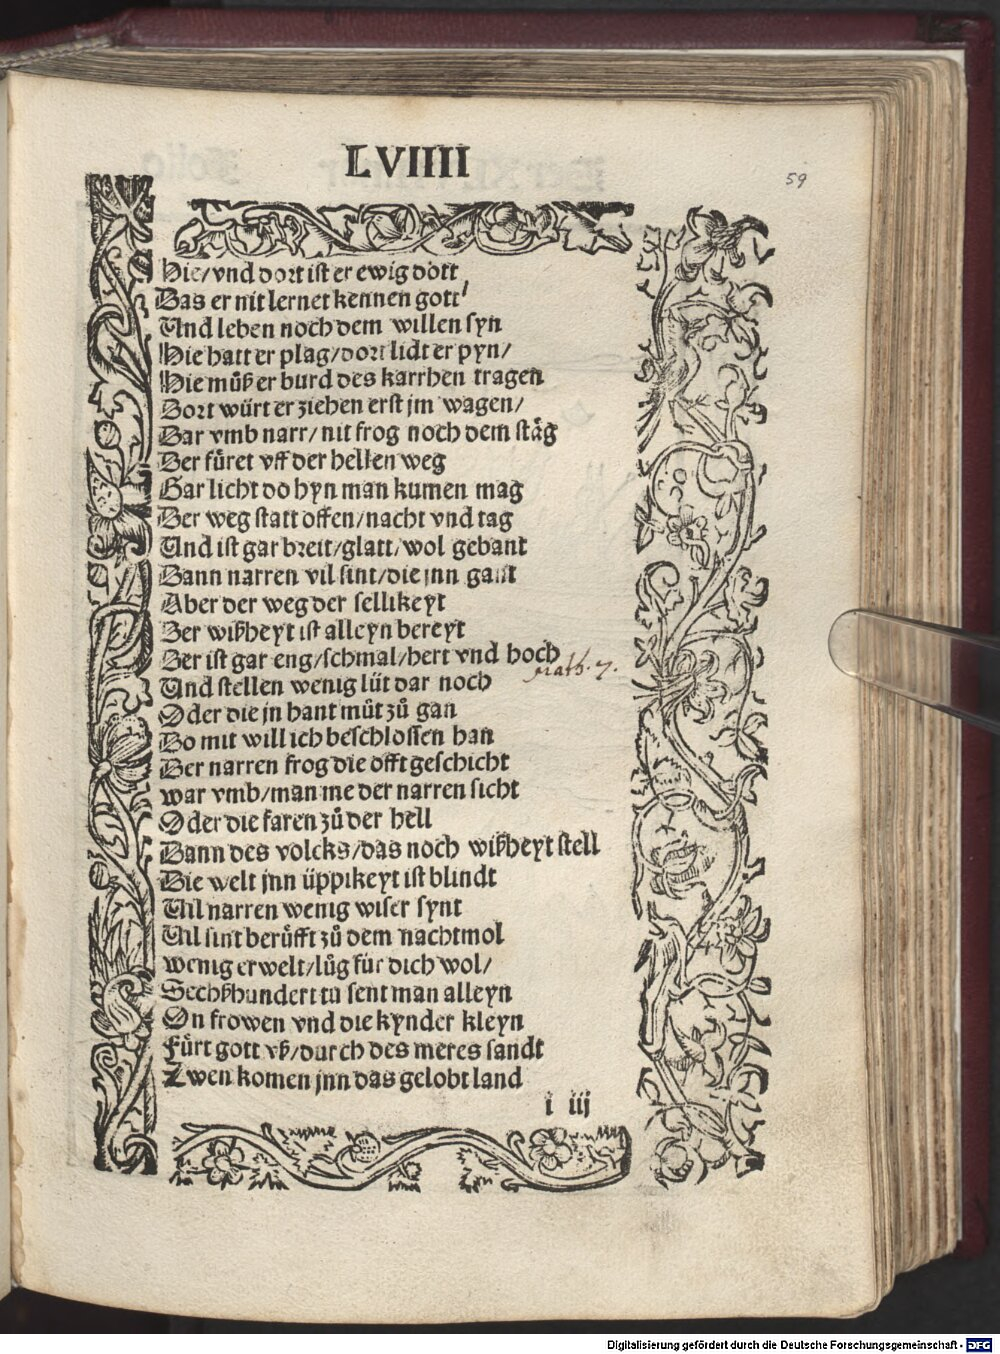 LVIIII
59
Hie/vnd dort ist er ewig dott
Das er nit lernet kennen gott/
Und leben noch dem willen syn
Hie hatt er plag/dort lidt er pyn/
Hie muͦß er burd des karrhen tragen
Dort würt er ziehen erst jm wagen/
Dar vmb narr/nit frog noch dem stäg
Der füret vff der hellen weg
Gar licht do hyn man kumen mag
Der weg statt offen/nacht vnd tag
Und ist gar breit/glatt/wol gebant
Dann narren vil sint/die jnn gaist
Aber der weg der sellikeyt
Der wißheyt ist alleyn bereyt
Der ist gar eng/schmal/hert vnd hoch
Math. 7.
Und stellen wenig lüt dar noch
Oder die jn hant muͦt zuͦ gan
Do mit will ich beschlossen han
Der narren frog die offt geschicht
war vmb/man me der narren sicht
Oder die faren zuͦ der hell
Dann des volcks/das noch wißheyt stell
Die welt jnn üppikeyt ist blindt
Vil narren wenig wiser synt
Vil sint berüfft zuͦ dem nachtmol
wenig erwelt/luͦg für dich wol/
Sechßhundert tusent man alleyn
On frowen vnd die kynder kleyn
Fürt gott vß/durch des meres sandt
Zwen komen jnn das gelobt land
i iij
Digitalisierung gefördert durch die Deutsche Forschungsgemeinschaft - DFG